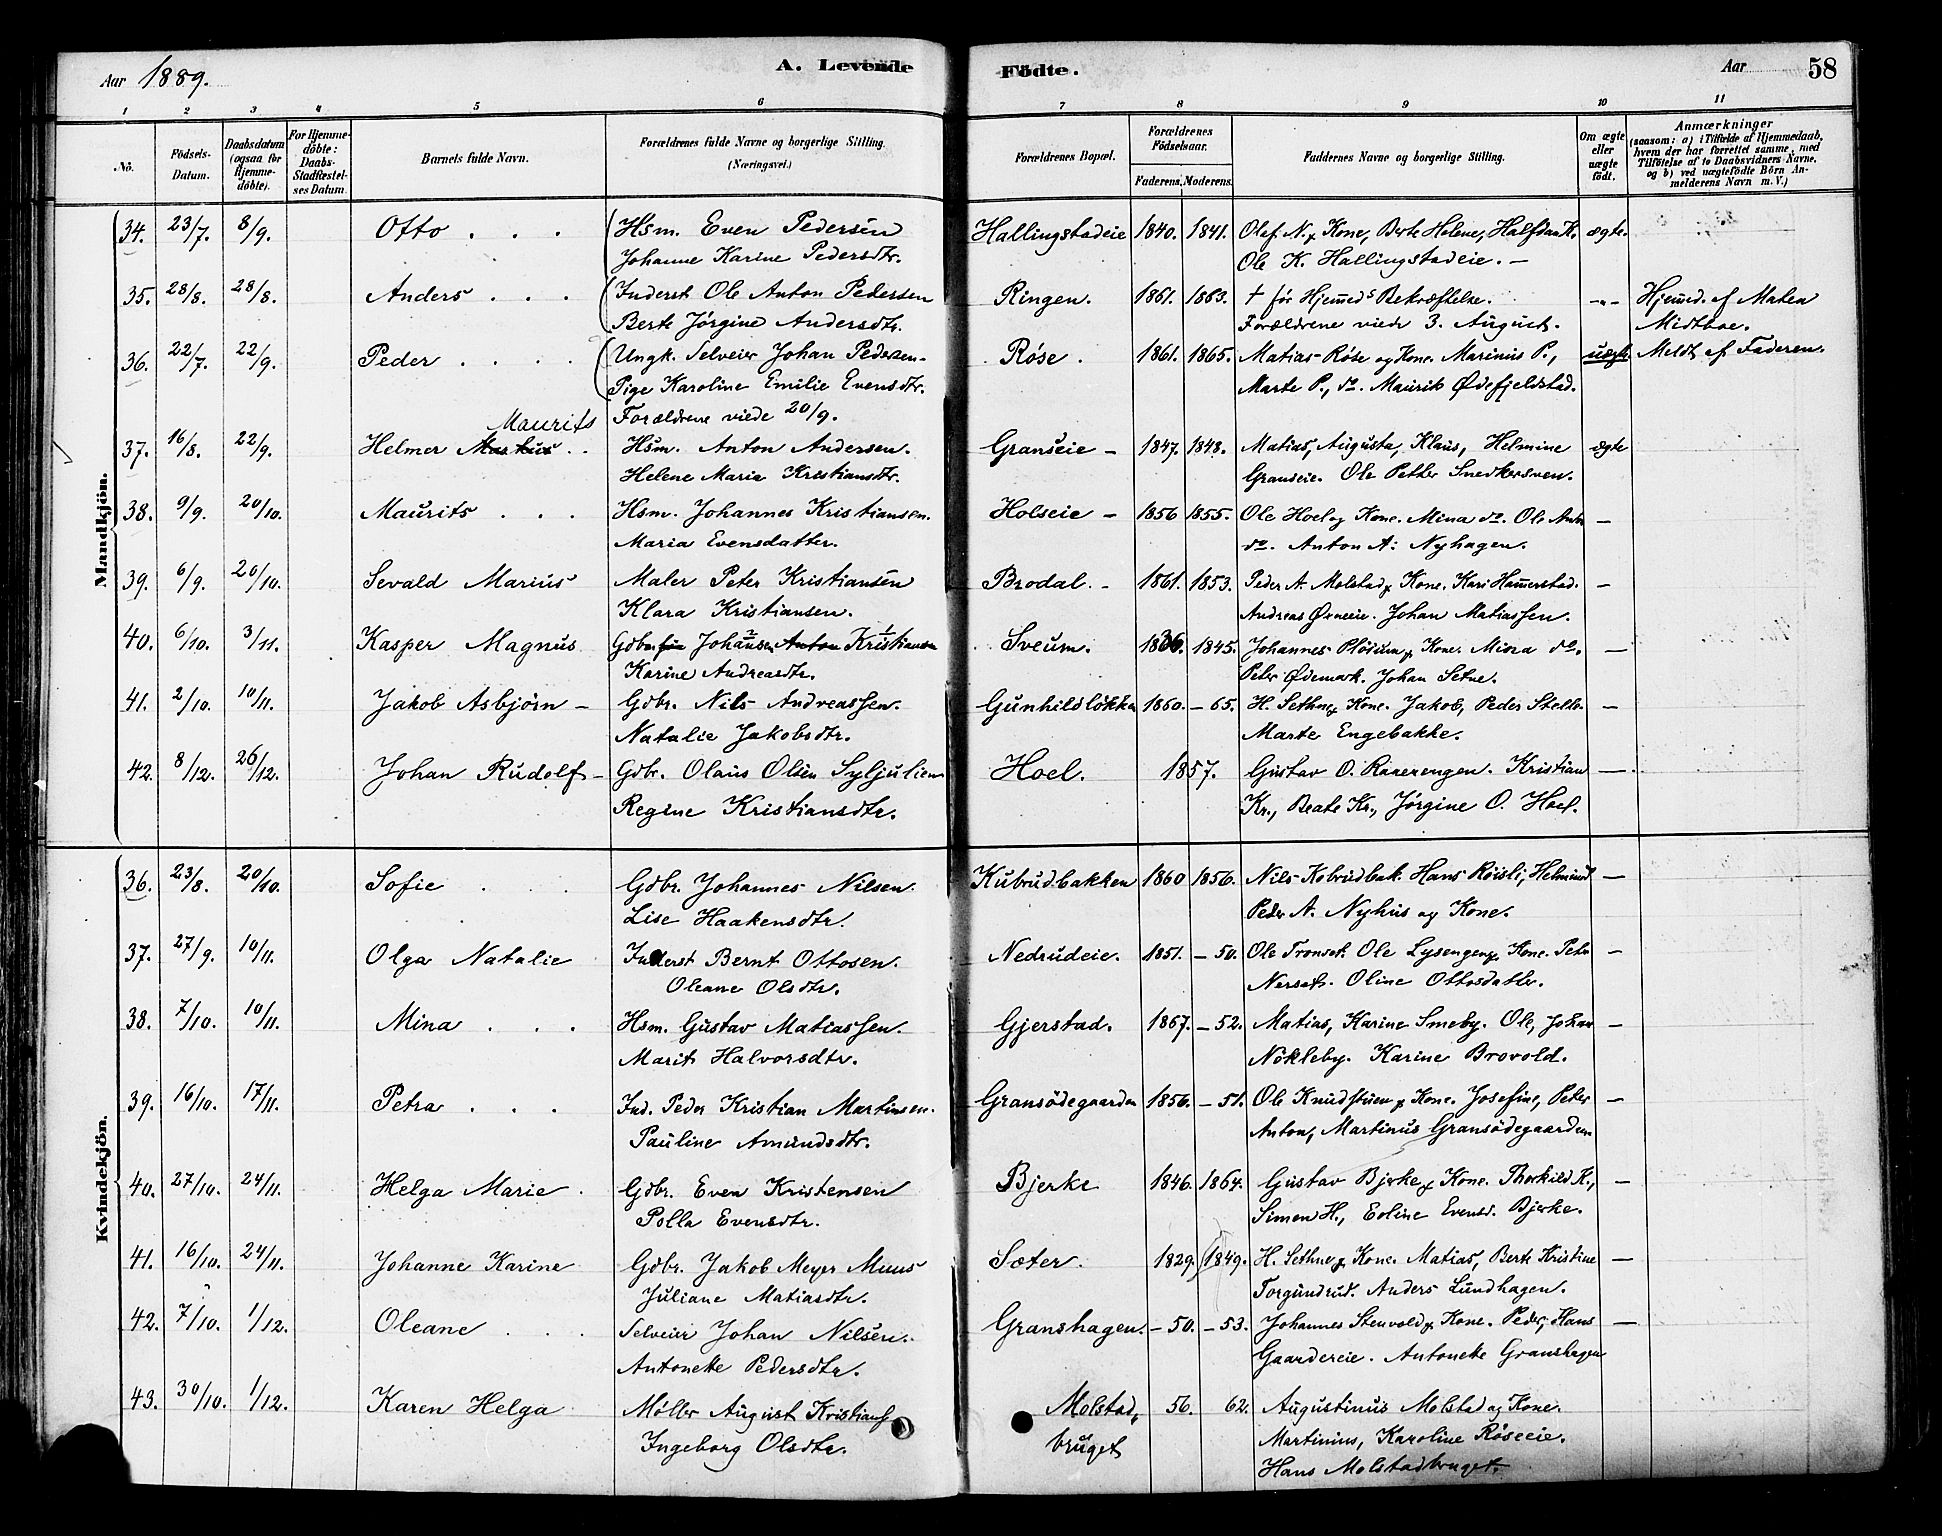 Aar 1889. A. Levende Födte. Aar 58
1 2 3 4 5 6 7 8 9 10 11
No. Födsels-Datum. Daabsdatum (ogsaa for Hjemme-döbte). For Hjemme-döbte: Daabs-Stadfæstelses Datum. Barnets fulde Navn. Forældrenes fulde Navne og borgerlige Stilling. (Næringsvei.) Forældrenes Bopæl. Forældrenes Födselsaar. Faderens. Moderens. Faddernes Navne og borgerlige Stilling. Om ægte eller uægte födt. Anmærkninger (saasom: a) i Tilfælde af Hjemmedaab, hvem der har forrettet samme, med Tilföielse af to Daabsvidners Navne, og b) ved uægtefödte Börn Anmelderens Navn m. V.)
Mandkjön.
34. 23/7. 8/9. Otto . . . Hsm. Even Pedersen Hallingstadeie 1840. 1841. Olaf N. & Kone, Berte Helene, Halfdan K. ægte.
Johanne Karine Pedersdtr. Ole K. Hallingstadeie. –
35. 28/8. 28/8. Anders . . . Inderst Ole Anton Pedersen Ringen. 1861. 1863. † før Hjemmeds Bekræftelse. –"– Hjemmed. af Matea
Berte Jørgine Andersdtr. Forældrene viede 3. August. Midtboe.
36. 22/7. 22/9. Peder . . . . Ungk. Selveier Johan Pedersen – Røse. 1861. 1865. Matias Røse og Kone. Marinus P., uægte. Meldt af Faderen.
Pige Karoline Emilie Evensdtr. Marte P., do. Maurits Ødefjeldstad.
Forældrene viede 20/9.
Maurits
37. 16/8. 22/9. Helmer Markus . . Hsm. Anton Andersen. Granseie – 1847. 1848. Matias, Augusta, Klaus, Helmine ægte
Helene Maria Kristiansdtr. Granseie. Ole Petter Snedkersven.
38. 9/9. 20/10. Maurits . . . Hsm. Johannes Kristiansen. Holseie – 1856 1855. Ole Hoel og Kone. Mina do. Ole Anton –
Maria Evensdatter. do. Anton A. Nyhagen.
39. 6/9. 20/10. Sevald Marius Maler Peter Kristiansen Brodal. – 1861. 1853. Peder A. Molstad & Kone. Kari Hammerstad. –
Klara Kristiansen. Andreas Øvneie. Johan Matiassen.
40. 6/10. 3/11. Kasper Magnus Gdbr. Johansen Anton Kristiansen Sveum. 1836. 1845. Johannes Plösum & Kone. Mina do. –
Karine Andreasdtr. Peter Ødemark. Johan Setne.
41. 2/10. 10/11. Jakob Asbjörn – Gdbr. Nils Andreassen. Gunhildlökka 1860. – 65. H. Sethne & Kone. Jakob, Peder Stelle. –
Natalie Jakobsdtr. Marte Engebakke.
42. 8/12. 26/12. Johan Rudolf – Gdbr. Olaus Olsen Syljulien Hoel. 1857. Gustav O. Raaerengen. Kristian –
Regine Kristiansdtr. Kr., Beate Kr., Jørgine O. Hoel.
Kvindekjön.
36. 23/8. 20/10. Sofie . . . Gdbr. Johannes Nilsen. Kubrudbakken 1860 1856. Nils Kobrudbak. Hans Röisli, Helmine –
Lise Haakensdtr. Peder A. Nyhus og Kone.
37. 27/9. 10/11. Olga Natalie Inderst Bernt Ottosen. Nedrudeie. 1851. – 50. Ole Tronset. Ole Lysengen & Kone. Peter –
Oleane Olsdtr. Nerset. Oline Ottosdatter.
38. 7/10. 10/11. Mina . . . Hsm. Gustav Matiassen. Gjerstad. 1867. – 52. Matias, Karine Smeby. Ole, Johan –
Marit Halvorsdtr. Nökleby. Karine Brovold.
39. 16/10. 17/11. Petra . . . Ind. Peder Kristian Martinsen. Gransödegaarden 1856. – 51. Ole Knudstuen & Kone. Josefine, Peter –
Pauline Amundsdtr. Anton, Martinus Gransödegaarden
40. 27/10. 24/11. Helga Marie . Gdbr. Even Kristensen Bjerke 1846. 1864. Gustav Bjerke & Kone. Thorkild K., –
Polla Evensdtr. Simen H., Eoline Evensd. Bjerke.
41. 16/10. 24/11. Johanne Karine Gdbr. Jakob Meyer Muus Sæter. 1829. 1849. H. Sethne & Kone. Matias, Berte Kristine –
Juliane Matiasdtr. Torgundrud. Anders Lundhagen.
42. 7/10. 1/12. Oleane . . . Selveier Johan Nilsen. Granshagen. – 50. – 53. Johannes Stenvold & Kone. Peder, Hans –
Antonette Pedersdtr. Gaardereie. Antonette Granshagen
43. 30/10. 1/12. Karen Helga Møller August Kristians Molstad, 56. 62. Augustinus Molstad og Kone.
Ingeborg Olsdtr. bruget Martinius, Karoline Röseeie.
Hans Molstadbruget.